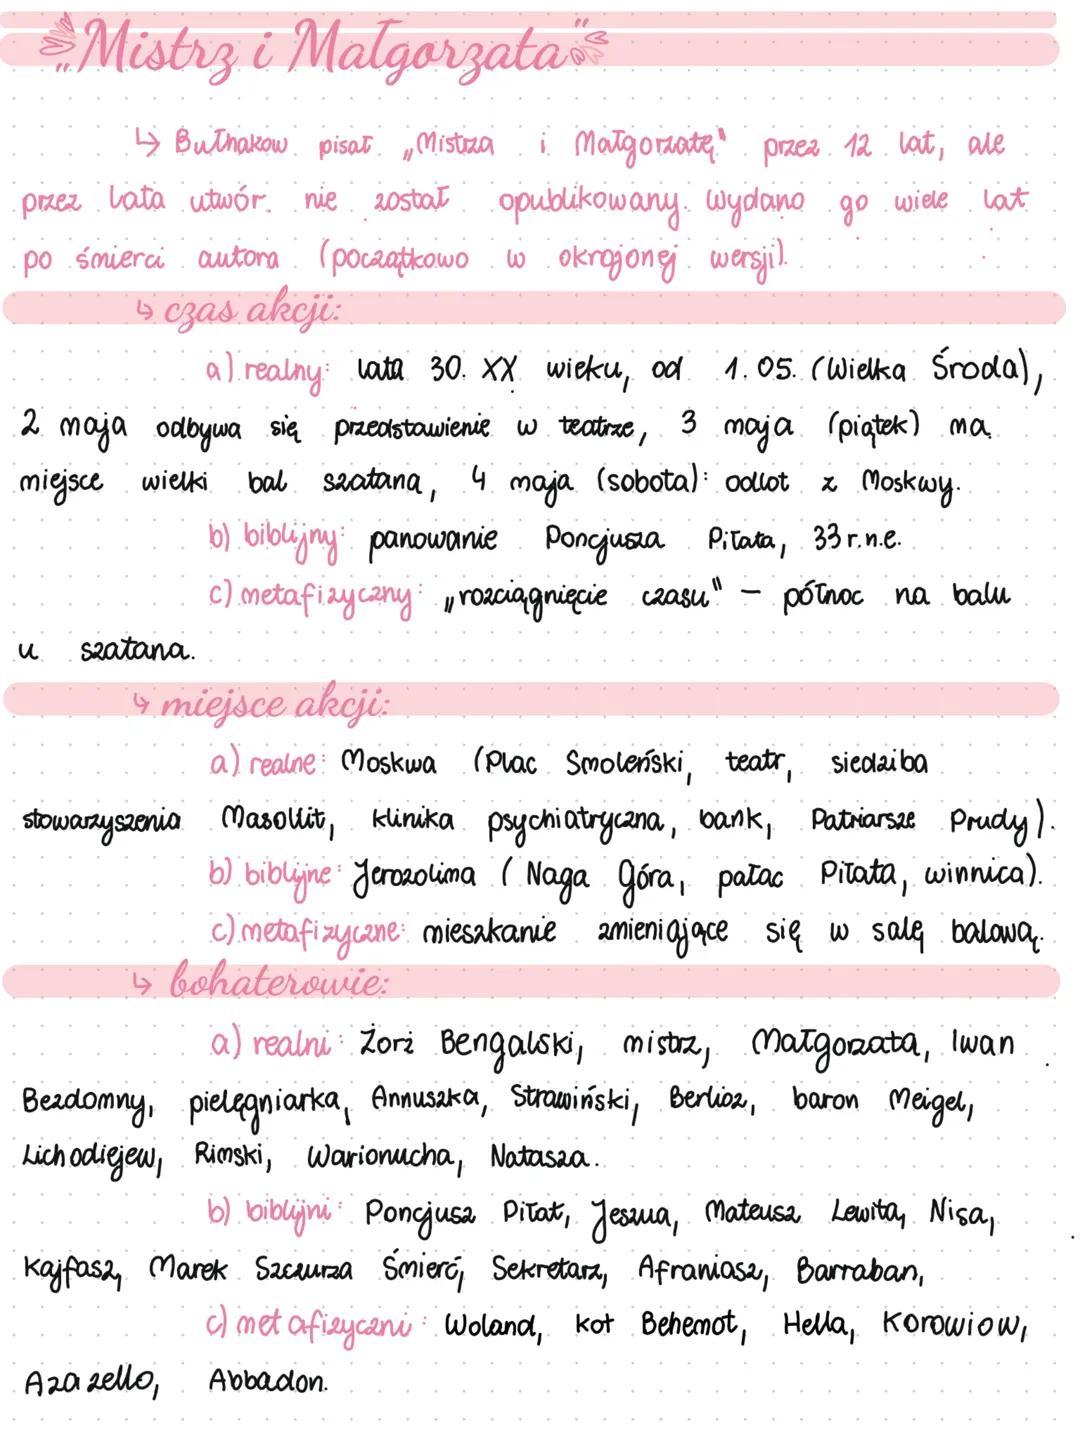 „Mistrz i Małgorzata"
↳ Bułhakow pisał „Mistrza i Małgorzatę" przez 12 lat, ale
przez lata utwór nie został opublikowany. Wydano go wiele lat
po śmierci autora (początkowo w okrojonej wersji).
↳ czas akcji:
a) realny: lata 30. XX wieku, od 1.05. (Wielka Środa),
2 maja odbywa się przedstawienie w teatrze, 3 maja (piątek) ma
miejsce wielki bal szatana, 4 maja (sobota): odlot z Moskwy.
b) biblijny: panowanie Poncjusza Piłata, 33 r.n.e.
c) metafizyczny: „rozciągnięcie czasu" – północ na balu
u szatana.
↳ miejsce akcji:
a) realne: Moskwa (Plac Smoleński, teatr, siedziba
stowarzyszenia Massolit, klinika psychiatryczna, bank, Patriarsze Prudy).
b) biblijne: Jerozolima (Naga Góra, pałac Piłata, winnica).
c) metafizyczne: mieszkanie zmieniające się w salę balową.
↳ bohaterowie:
a) realni: Żorż Bengalski, mistrz, Małgorzata, Iwan
Bezdomny, pielęgniarka, Annuszka, Strawiński, Berlioz, baron Meigel,
Lichodiejew, Rimski, Warionucha, Natasza.
b) biblijni: Poncjusz Piłat, Jeszua, Mateusz Lewita, Nisa,
Kajfasz, Marek Szczurza Śmierć, Sekretarz, Afraniasz, Barraban,
c) metafizyczni: Woland, kot Behemot, Hella, Korowiow,
Azazello, Abbadon.